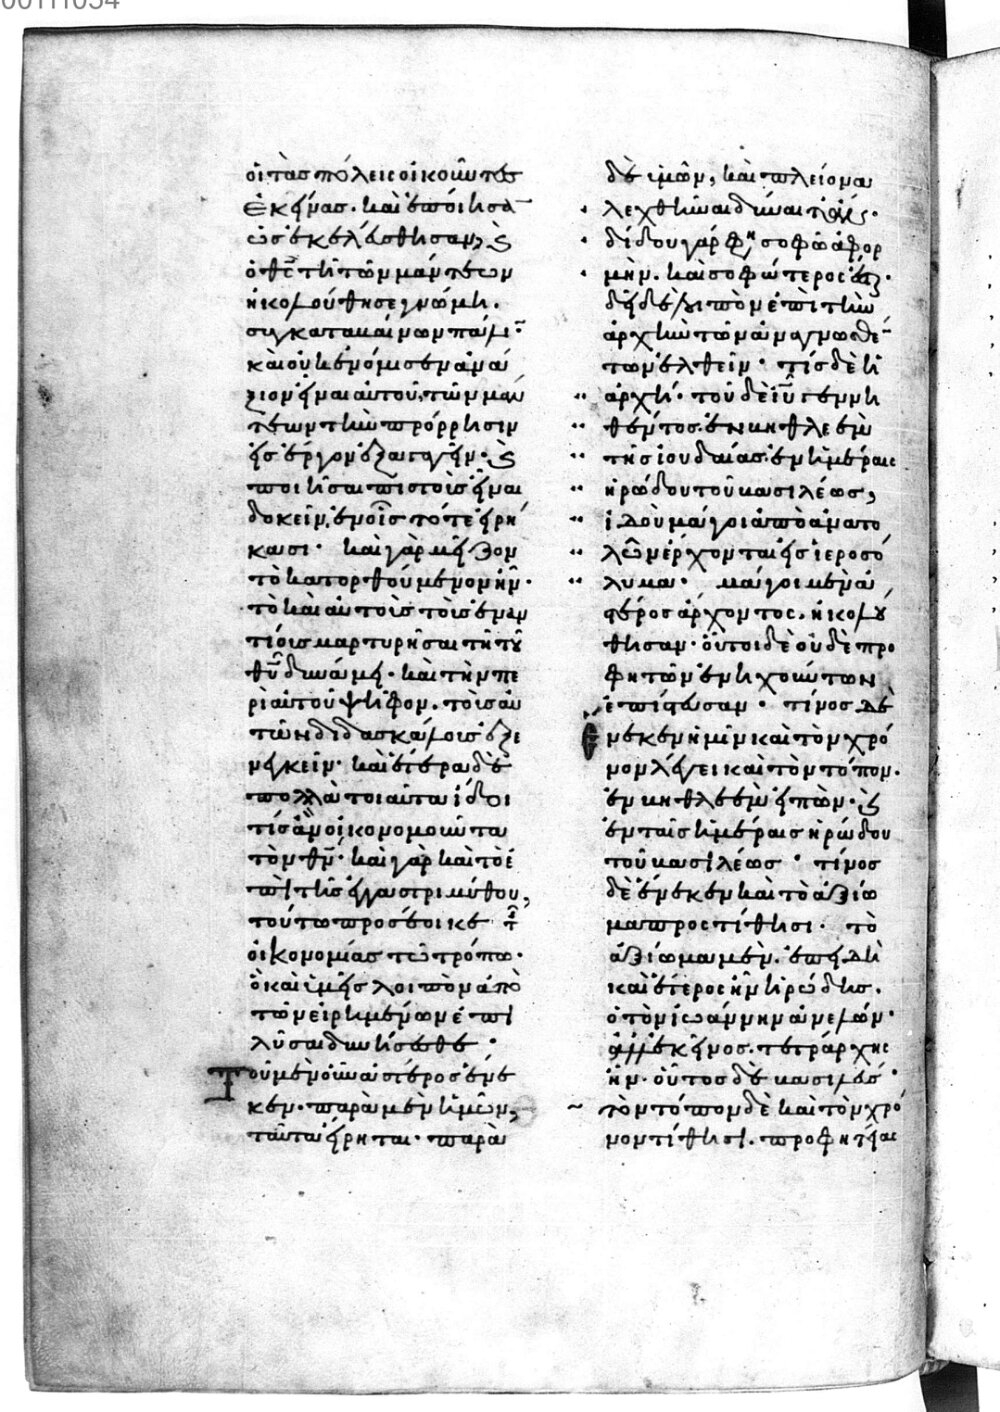 00111054
οἱ τὰς πόλεις οἰκοῦντες
ἐκείνας. καὶ ἐποίησα
ὡς ἐκελεύσθησαν, καὶ
ὁ θεὸς τῇ τῶν μάντεων
ἠκολούθησε γνώμῃ.
συγκαταβαίνων πάλιν
καὶ οὐκ ἐνόμισεν ἀνά
ξιον εἶναι αὐτοῦ, τῶν μάν
τεων τὴν πρόρρησιν
εἰς ἔργον ἐξαγαγεῖν. καὶ
ποιῆσαι πιστοὺς εἶναι
δοκεῖν, ἐν οἷς τότε εἰρή
κασι. καὶ γὰρ μεῖζον
τὸ κατορθούμενον ἦν.
τὸ καὶ αὐτοὺς τοὺς ἐναν
τίους μαρτυρῆσαι τῇ τοῦ
θῦ δυνάμει. καὶ τὴν πε
ρὶ αὐτοῦ ψῆφον. τοὺς αὐ
τῶν διδασκάλους ἐξε
νεγκεῖν. καὶ ἕτερα δὲ
πολλὰ τοιαῦτα ἴδοι
τίς ἂν οἰκονομοῦντα
τὸν θν. καὶ γὰρ καὶ τὸ ἐ
πὶ τῆς ἐγγαστριμύθου,
τούτω προσέοικε τῆς
οἰκονομίας τῶ τρόπω.
ὃ καὶ ὑμεῖς λοιπὸν ἀπὸ
τῶν εἰρημένων ἐπι
λῦσαι δυνήσεσθε.
Τοῦ μὲν οὖν ἀστέρος ἕνε
κεν. παρὰ μὲν ἡμῶν,
ταῦτα εἴρηται. παρὰ
δὲ ὑμῶν, καὶ πλείονα
λεχθῆναι δύναιτ' ἄν.
δίδου γάρ φησι σοφῶ ἀφορ
μὴν. καὶ σοφώτερος ἔσται.
δεῖ δὲ λοιπὸν ἐπὶ τὴν
ἀρχὴν τῶν ἀναγνωσθέν
των ἐλθεῖν. τίς δὲ ἡ
ἀρχή. τοῦ δὲ ιῦ γεννη
θέντος ἐν βηθλεὲμ
τῆς ἰουδαίας ἐν ἡμέραις
ἡρώδου τοῦ βασιλέως,
ἰδοὺ μάγοι ἀπὸ ἀνατο
λῶν ἔρχονται εἰς ἱεροσό
λυμα. μάγοι μὲν ἀ
στέρος ἄρχοντος. ἠκολού
θησαν. οὗτοι δὲ οὐδὲ προ
φητῶν ἐνηχούντων
ἐπίστευσαν. τίνος δὲ
ἕνεκεν ἡμῖν καὶ τὸν χρό
νον λέγει καὶ τὸν τόπον.
ἐν βηθλεὲμ εἰπὼν. καὶ
ἐν ταῖς ἡμέραις ἡρώδου
τοῦ βασιλέως. τίνος
δὲ ἕνεκεν καὶ τὸ ἀξίω
μα προστίθησι. τὸ
ἀξίωμα μὲν. ἐπειδὴ
καὶ ἕτερος ἦν ἡρώδης.
ὁ τὸν ἰωάννην ἀνελών.
ἀλλ' ἐκεῖνος. τετράρχης
ἦν. οὗτος δὲ βασιλεύς.
τὸν τόπον δὲ καὶ τὸν χρό
νον τίθησι. προφητείας